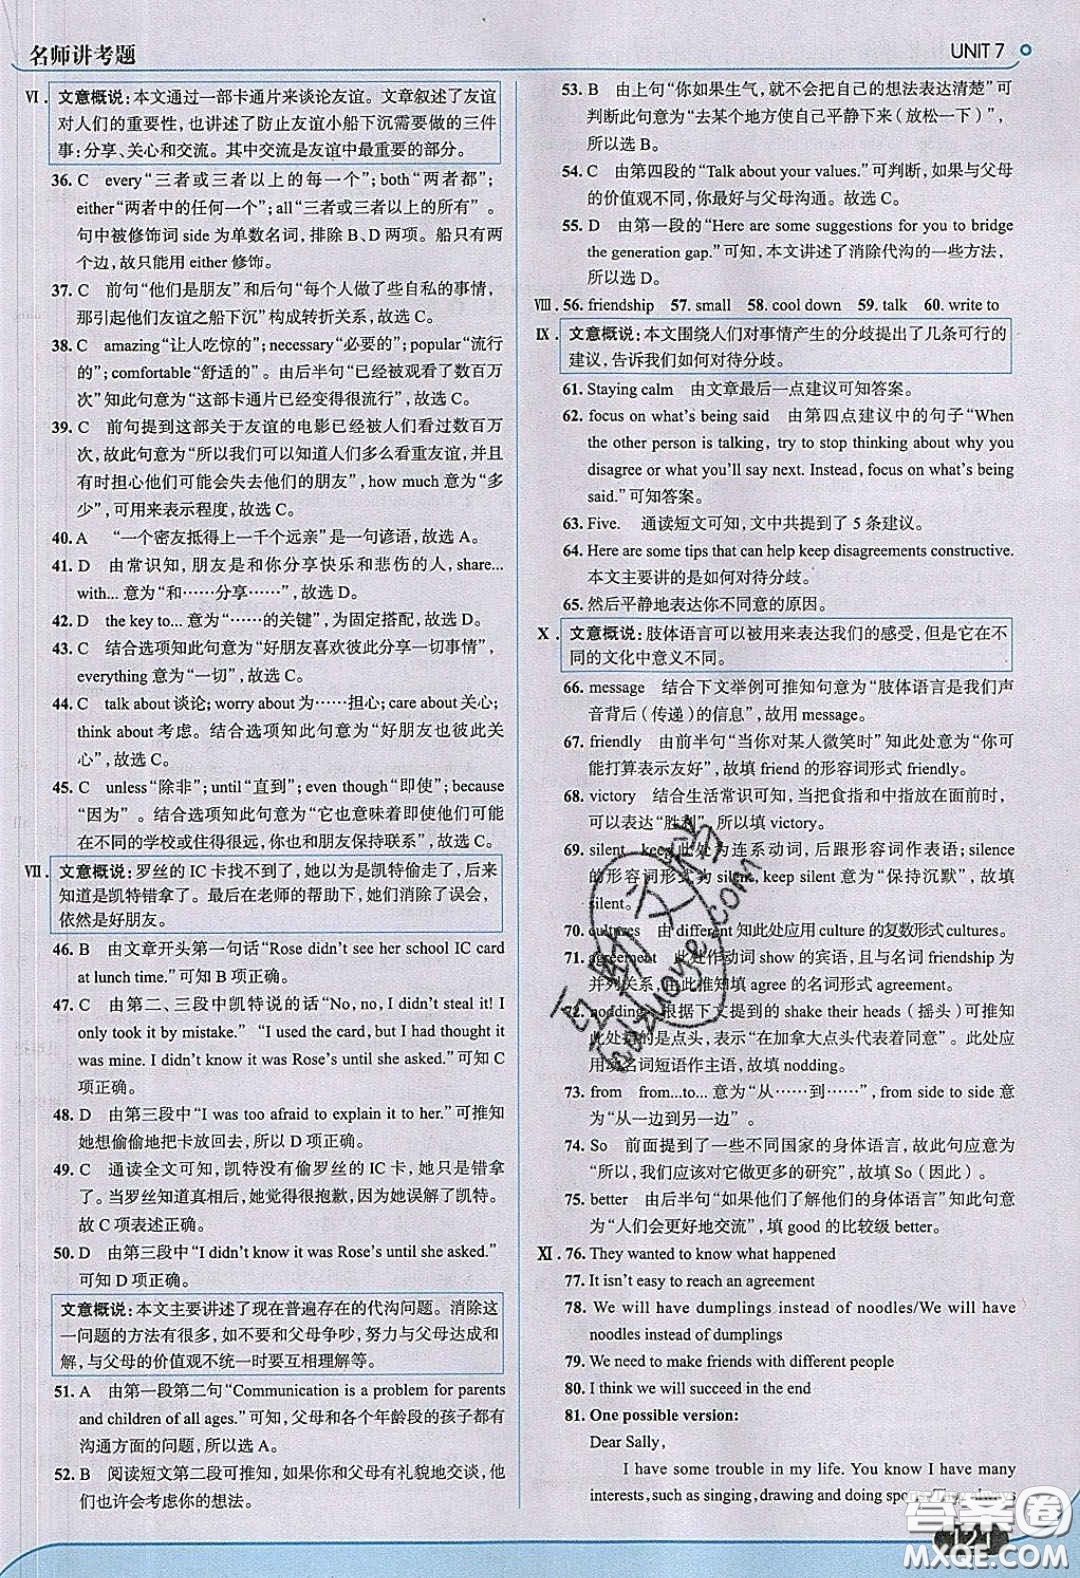 名师讲考题
UNIT 7
Ⅵ. 文意概说:本文通过一部卡通片来谈论友谊。文章叙述了友谊
对人们的重要性，也讲述了防止友谊小船下沉需要做的三件
事:分享、关心和交流。其中交流是友谊中最重要的部分。
36. C every“三者或三者以上的每一个”;both“两者都”;
either“两者中的任何一个”;all“三者或三者以上的所有”。
句中被修饰词 side 为单数名词，排除 B、D 两项。船只有两
个边，故只能用 either 修饰。
37. C 前句“他们是朋友”和后句“每个人做了些自私的事情，
那引起他们友谊之船下沉”构成转折关系，故选 C。
38. C amazing“让人吃惊的”;necessary“必要的”;popular“流行
的”;comfortable“舒适的”。由后半句“已经被观看了数百万
次”知此句意为“这部卡通片已经变得很流行”，故选 C。
39. C 前句提到这部关于友谊的电影已经被观看了数百万
次，故此句意为“所以我们可以知道人们多么看重友谊，并且
有时担心他们可能会失去他们的朋友”，how much 意为“多
少”，可用来表示程度，故选 C。
40. A “一个密友抵得上一千个远亲”是一句谚语，故选 A。
41. D 由常识知，朋友是和你分享快乐和悲伤的人，share...
with... 意为“和……分享……”，故选 D。
42. D the key to... 意为“……的关键”，为固定搭配，故选 D。
43. C 结合选项知此句意为“好朋友喜欢彼此分享一切事情”，
everything 意为“一切”，故选 C。
44. C talk about 谈论; worry about 为……担心; care about 关心;
think about 考虑。结合选项知此句意为“好朋友也彼此关
心”，故选 C。
45. C unless“除非”;until“直到”;even though“即使”;because
“因为”。结合选项知此句意为“它也意味着即使他们可能
在不同的学校或住得很远，你也和朋友保持联系”，故选 C。
Ⅶ. 文意概说:罗丝的 IC 卡找不到了，她以为是凯特偷走了，后来
知道是凯特错拿了。最后在老师的帮助下，她们消除了误会，
依然是好朋友。
46. B 由文章开头第一句话“Rose didn't see her school IC card
at lunch time.”可知 B 项正确。
47. C 由第二、三段中凯特说的话“No, no, I didn't steal it! I
only took it by mistake.” “I used the card, but I had thought it
was mine. I didn't know it was Rose's until she asked.”可知 C
项正确。
48. D 由第三段中“I was too afraid to explain it to her.”可推知
她想偷偷地把卡放回去，所以 D 项正确。
49. C 通读全文可知，凯特没有偷罗丝的 IC 卡，她只是错拿
了。当罗丝知道真相后，她觉得很抱歉，因为她误解了凯特。
故 C 项表述正确。
50. D 由第三段中“I didn't know it was Rose's until she asked.”
可知 D 项正确。
文意概说:本文主要讲述了现在普遍存在的代沟问题。消除这
一问题的方法有很多，如不要和父母争吵，努力与父母达成和
解，与父母的价值观不统一时要互相理解等。
51. A 由第一段第二句“Communication is a problem for parents
and children of all ages.”可知，父母和各个年龄段的孩子都有
沟通方面的问题，所以选 A。
52. B 阅读短文第二段可推知，如果你和父母有礼貌地交谈，他
们也许会考虑你的想法。
53. B 由上句“你如果生气，就不能把自己的想法表达清楚”
可判断此句意为“去某个地方使自己平静下来（放松一下）”，
所以选 B。
54. C 由第四段的“Talk about your values.”可判断，如果与父母
的价值观不同，你最好与父母沟通。故选 C。
55. D 由第一段的“Here are some suggestions for you to bridge
the generation gap.”可知，本文讲述了消除代沟的一些方法，
所以选 D。
Ⅷ. 56. friendship 57. small 58. cool down 59. talk 60. write to
Ⅸ. 文意概说:本文围绕人们对事情产生的分歧提出了几条可行的
建议，告诉我们如何对待分歧。
61. Staying calm 由文章最后一点建议可知答案。
62. focus on what's being said 由第四点建议中的句子“When
the other person is talking, try to stop thinking about why you
disagree or what you'll say next. Instead, focus on what's being
said.”可知答案。
63. Five. 通读短文可知，文中共提到了 5 条建议。
64. Here are some tips that can help keep disagreements constructive.
本文主要讲的是如何对待分歧。
65. 然后平静地表达你不同意的原因。
Ⅹ. 文意概说:肢体语言可以被用来表达我们的感受，但是它在不
同的文化中意义不同。
66. message 结合下文举例可推知句意为“肢体语言是我们声
音背后（传递）的信息”，故用 message。
67. friendly 由前半句“当你对某人微笑时”知此处意为“你可
能打算表示友好”，故填 friend 的形容词形式 friendly。
68. victory 结合生活常识可知，当把食指和中指放在面前时，
可以表达“胜利”，所以填 victory。
69. silent keep 此处为连系动词，后跟形容词作表语; silence
的形容词形式为 silent, keep silent 意为“保持沉默”，故填
silent。
70. cultures 由 different 知此处应用 culture 的复数形式 cultures。
71. agreement 此处作动词 show 的宾语，且与名词 friendship 为
并列关系，由此推知填 agree 的名词形式 agreement。
72. nodding 根据下文提到的 shake their heads（摇头）可推知
此处指的是点头，表示“在加拿大点头代表着同意”。此处应
用动名词短语作主语，故填 nodding。
73. from from...to... 意为“从……到……”，from side to side
意为“从一边到另一边”。
74. So 前面提到了一些不同国家的身体语言，故此句应意为
“所以，我们应该对它做更多的研究”，故填 So（因此）。
75. better 由后半句“如果他们了解他们的身体语言”知此句意
为“人们会更好地交流”，填 good 的比较级 better。
Ⅺ. 76. They wanted to know what happened
77. It isn't easy to reach an agreement
78. We will have dumplings instead of noodles/We will have
noodles instead of dumplings
79. We need to make friends with different people
80. I think we will succeed in the end
81. One possible version:
Dear Sally,
I have some trouble in my life. You know I have many
interests, such as singing, drawing and doing
121
答案圈
MXQE.COM